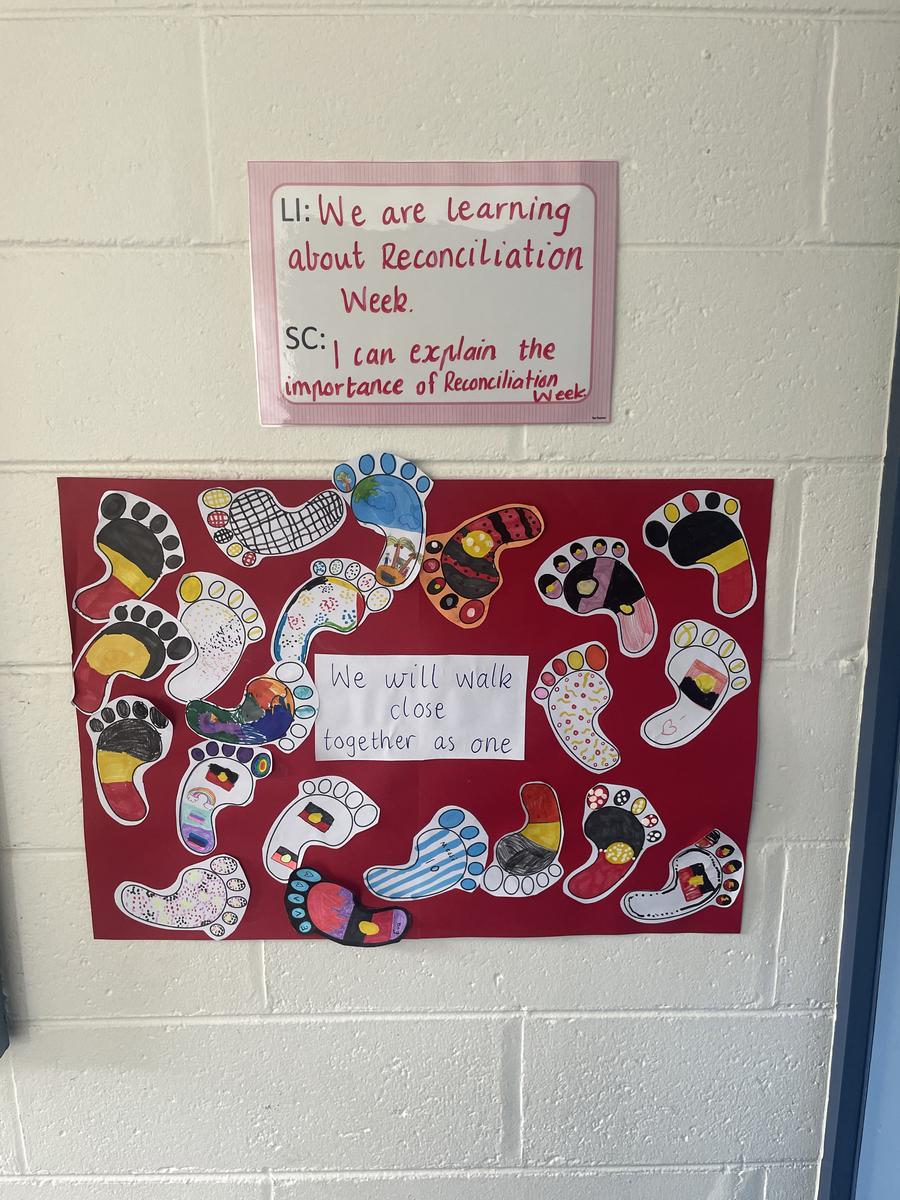 LI: We are learning
about Reconciliation
Week.
SC: I can explain the
importance of Reconciliation
Week.
We will walk
close
together as one